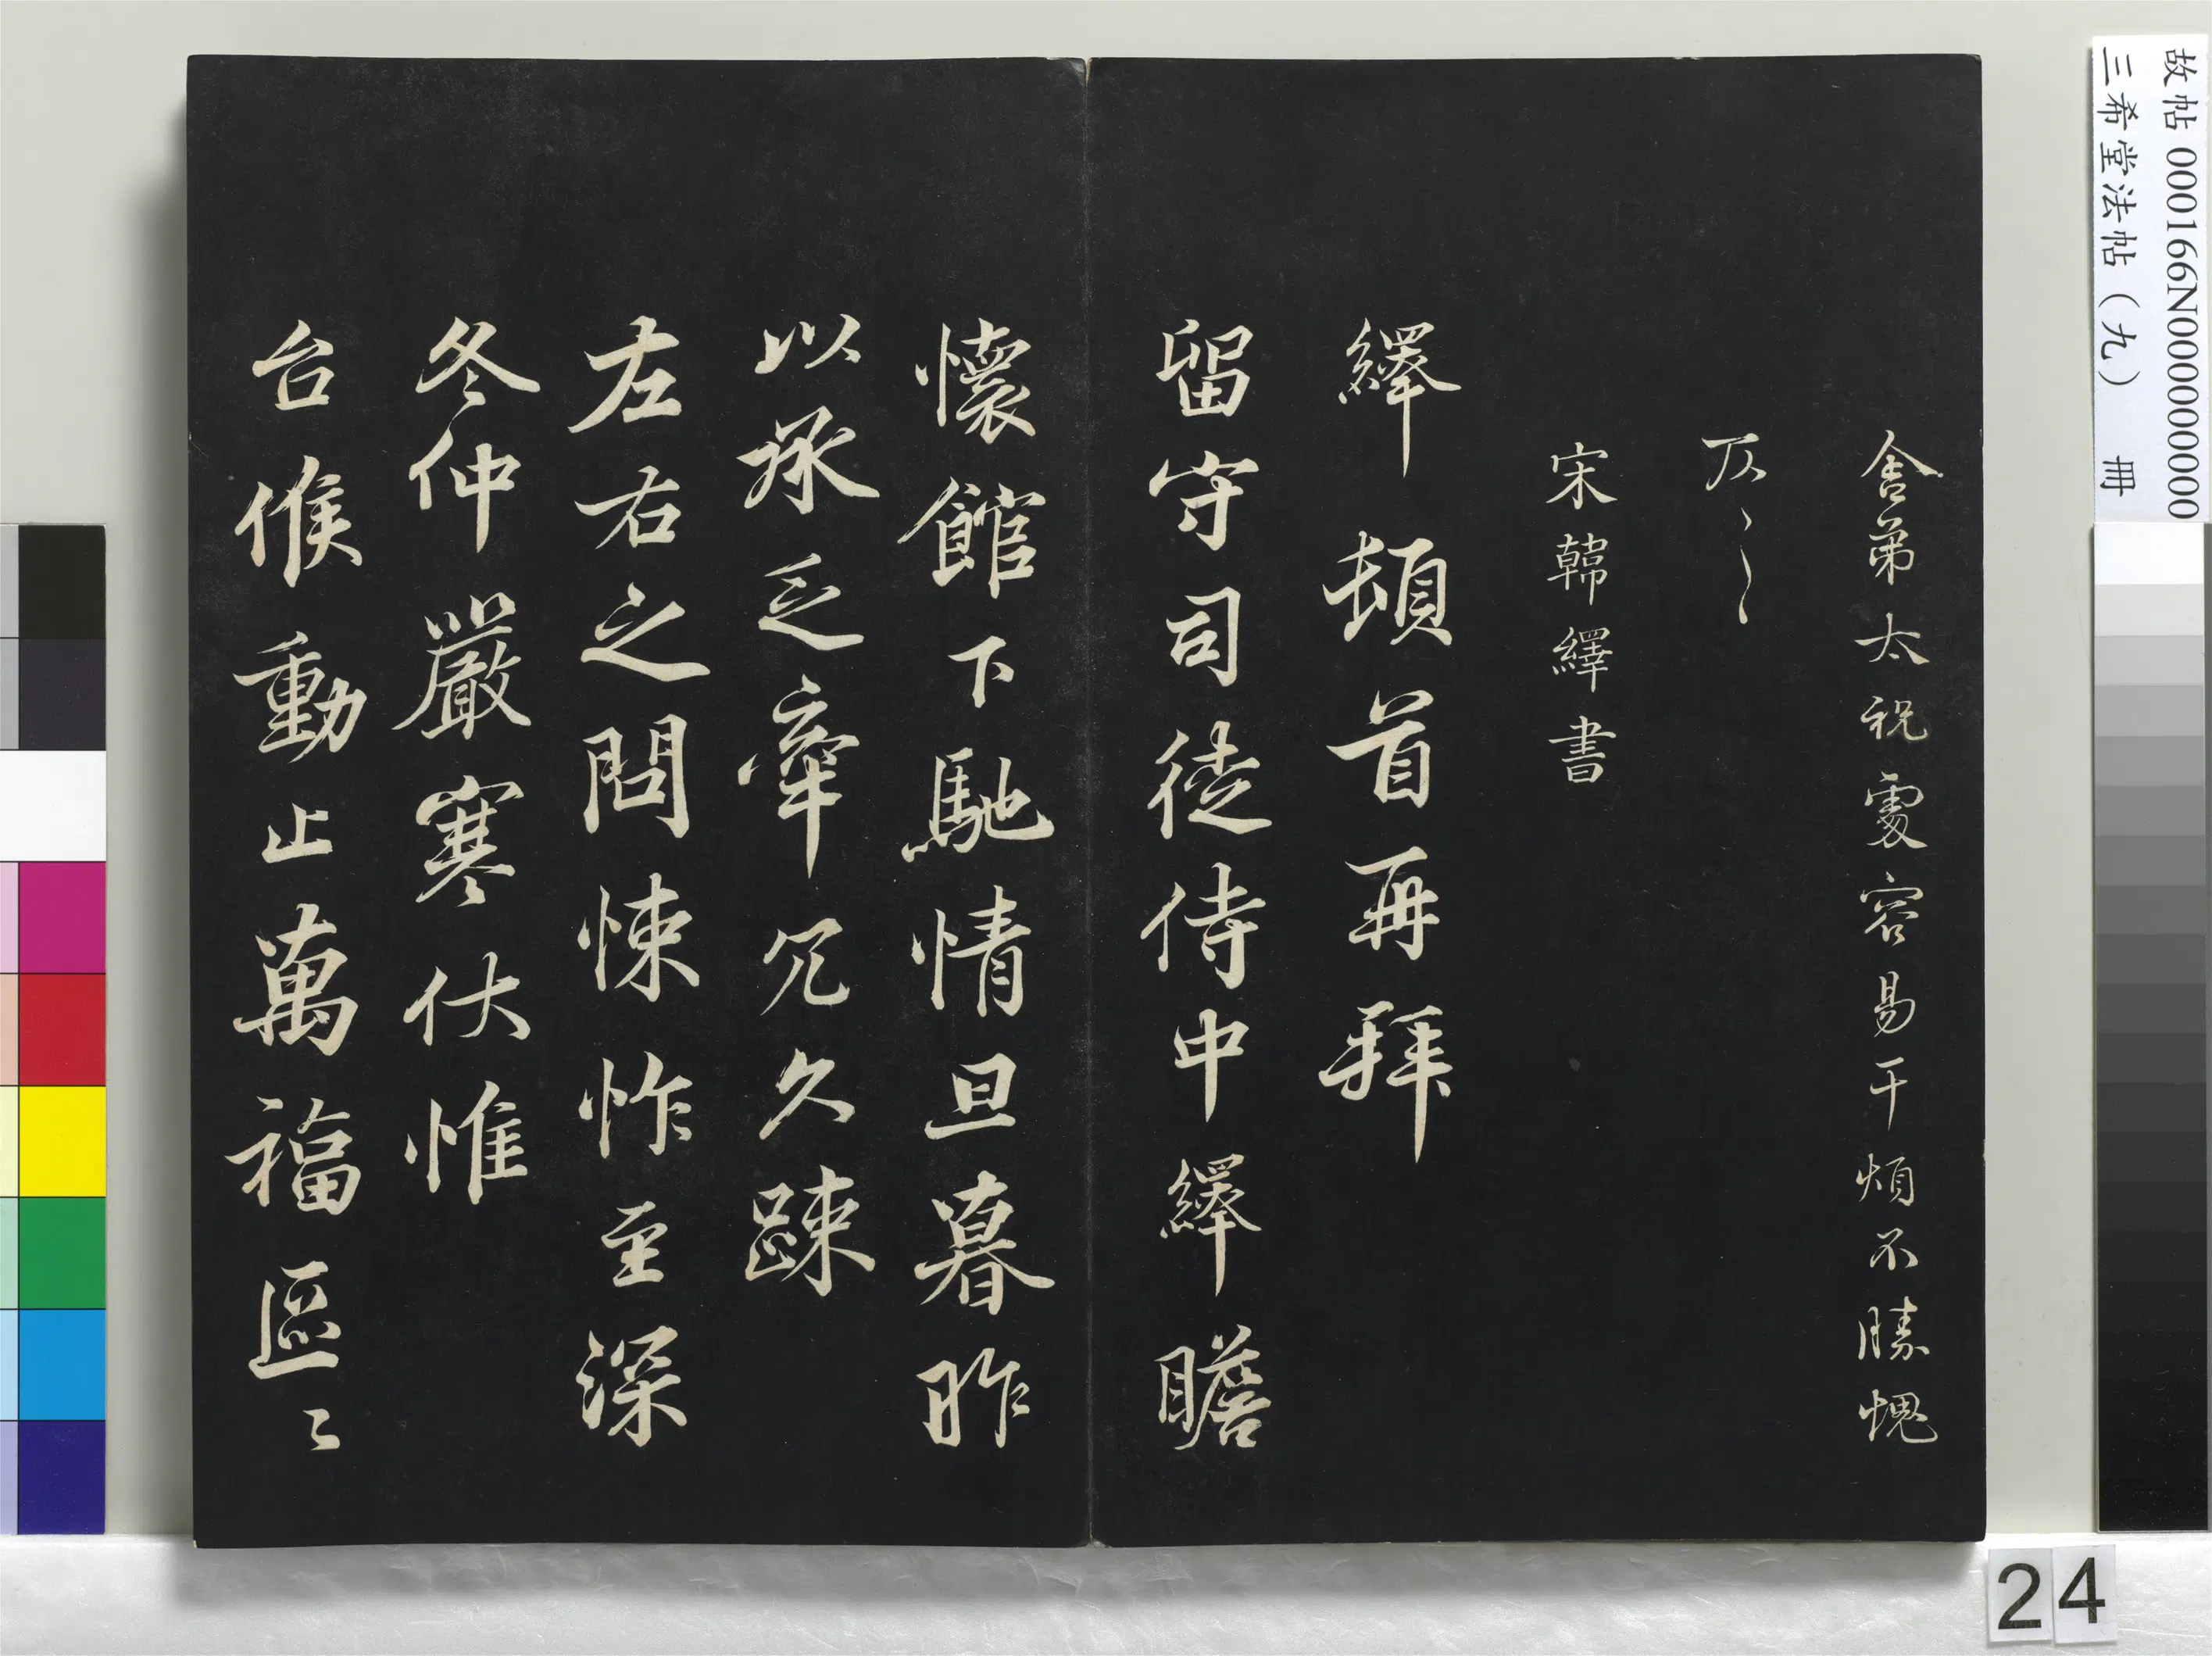 舍弟太祝處容易干煩不勝愧
仄〻〻
宋韓繹書
繹頓首再拜
留守司徒侍中繹瞻
懷館下馳情旦暮昨
以承乏牽冗久踈
左右之問悚怍至深
冬仲嚴寒伏惟
台候動止萬福區〻
故帖 000166N000000000000
三希堂法帖（九） 冊
24